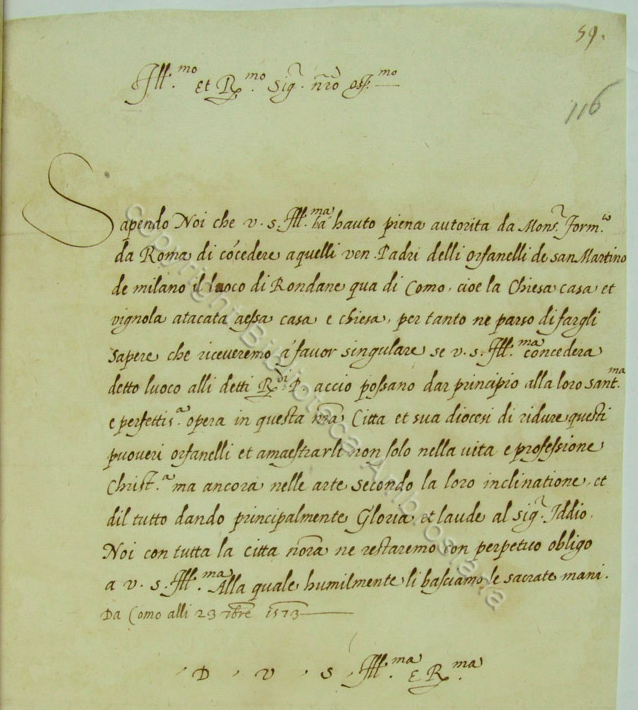 59.
116
Ill.mo et R.mo Sig.r nro oss.mo
Sapendo Noi che v. s. Ill.ma ha hauto piena autorita da Mons.r Form.to
da Roma di co'cedere aquelli ven. Padri delli orfanelli de san Martino
de milano il luoco di Rondane qua di Como, cioe la Chiesa casa et
vignola atacata aessa casa e chiesa, per tanto ne parso di fargli
sapere che riceveremo a favor singulare se v. s. Ill.ma concedera
detto luoco alli detti R.di P. accio possano dar principio alla loro sant.ma
e perfettis.a opera in questa nra Citta et sua diocesi di ridure questi
puoveri orfanelli et amaestrarli non solo nella vita e professione
Christ.a ma ancora nelle arte secondo la loro inclinatione, et
dil tutto dando principalmente Gloria, et laude al sig.r Iddio.
Noi con tutta la citta nora ne restaremo con perpetuo obligo
a v. s. Ill.ma Alla quale humilmente li basciamo le sacrate mani.
Da Como alli 23 1573
D. V. S. Ill.ma E R.ma
Copyright Biblioteca Ambrosiana